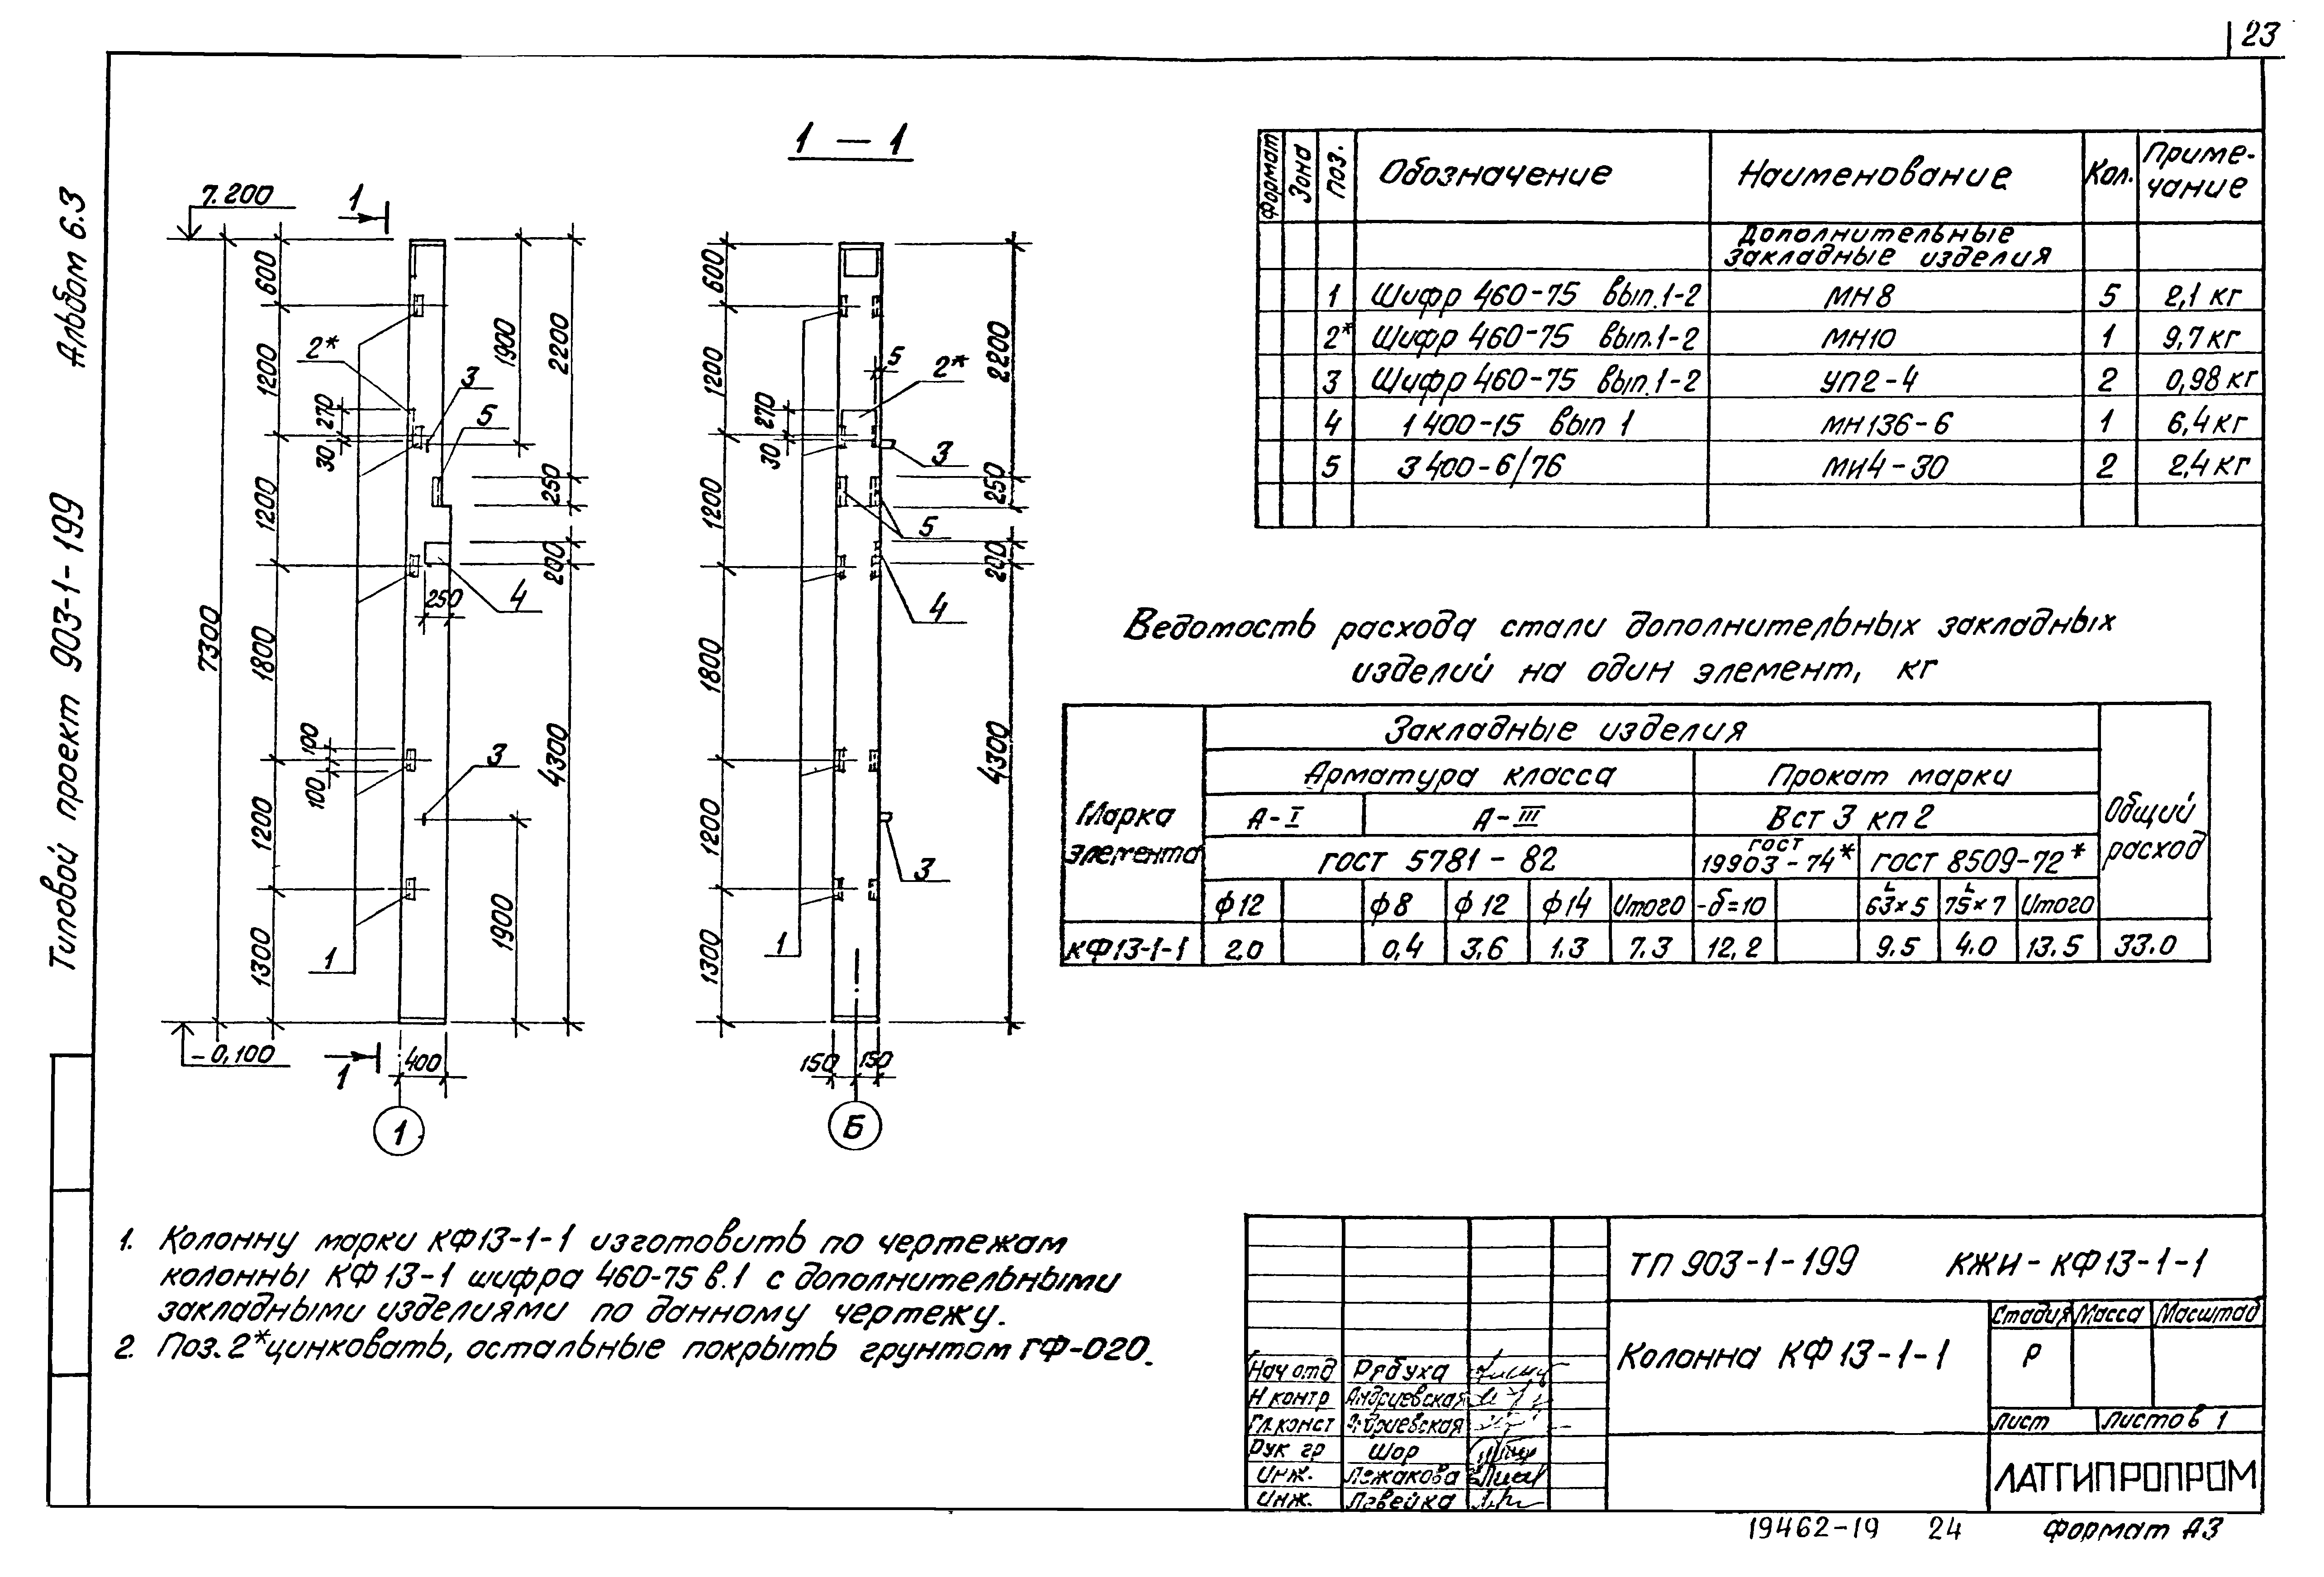 23
Альбом 6.3
Типовой проект 903-1-199
1 — 1
7.200
1
600
1200
270
30
1200
1800
100
100
1200
1300
7300
2*
3
5
1900
2200
250
200
250
4
4300
3
1900
1
-0,100
1
400
1
600
1200
270
30
1200
1800
1200
1300
5
2*
3
5
4
3
1
2200
250
200
4300
150
150
Б
Формат
Зона
Поз.
Обозначение
Наименование
Кол.
Приме-
чание
Дополнительные
закладные изделия
1 Шифр 460-75 вып.1-2 МН8 5 2,1 кг
2* Шифр 460-75 вып.1-2 МН10 1 9,7 кг
3 Шифр 460-75 вып.1-2 УП2-4 2 0,98 кг
4 1 400-15 вып 1 МН136-6 1 6,4 кг
5 3 400-6/76 МИ4-30 2 2,4 кг
Ведомость расхода стали дополнительных закладных
изделий на один элемент, кг
Марка
элемента
Закладные изделия
Общий
расход
Арматура класса
Прокат марки
А-I
А-III
Вст 3 кп 2
ГОСТ 5781-82
ГОСТ
19903-74*
ГОСТ 8509-72*
ф12 ф8 ф12 ф14 Итого -δ=10 L 63×5 L 75×7 Итого
КФ13-1-1 2.0 0,4 3,6 1.3 7.3 12,2 9.5 4.0 13.5 33.0
1. Колонну марки КФ13-1-1 изготовить по чертежам
колонны КФ 13-1 шифра 460-75 в.1 с дополнительными
закладными изделиями по данному чертежу.
2. Поз.2* цинковать, остальные покрыть грунтом ГФ-020.
ТП 903-1-199 КЖИ-КФ13-1-1
Колонна КФ 13-1-1
Стадия Масса Масштаб
Р
Лист Листов 1
ЛАТГИПРОПРОМ
Нач отд Рябуха
Н контр Андриевская
Гл.конст Андриевская
Рук гр Шор
Инж. Лежакова
Инж. Левейка
19462-19 24 Формат А3